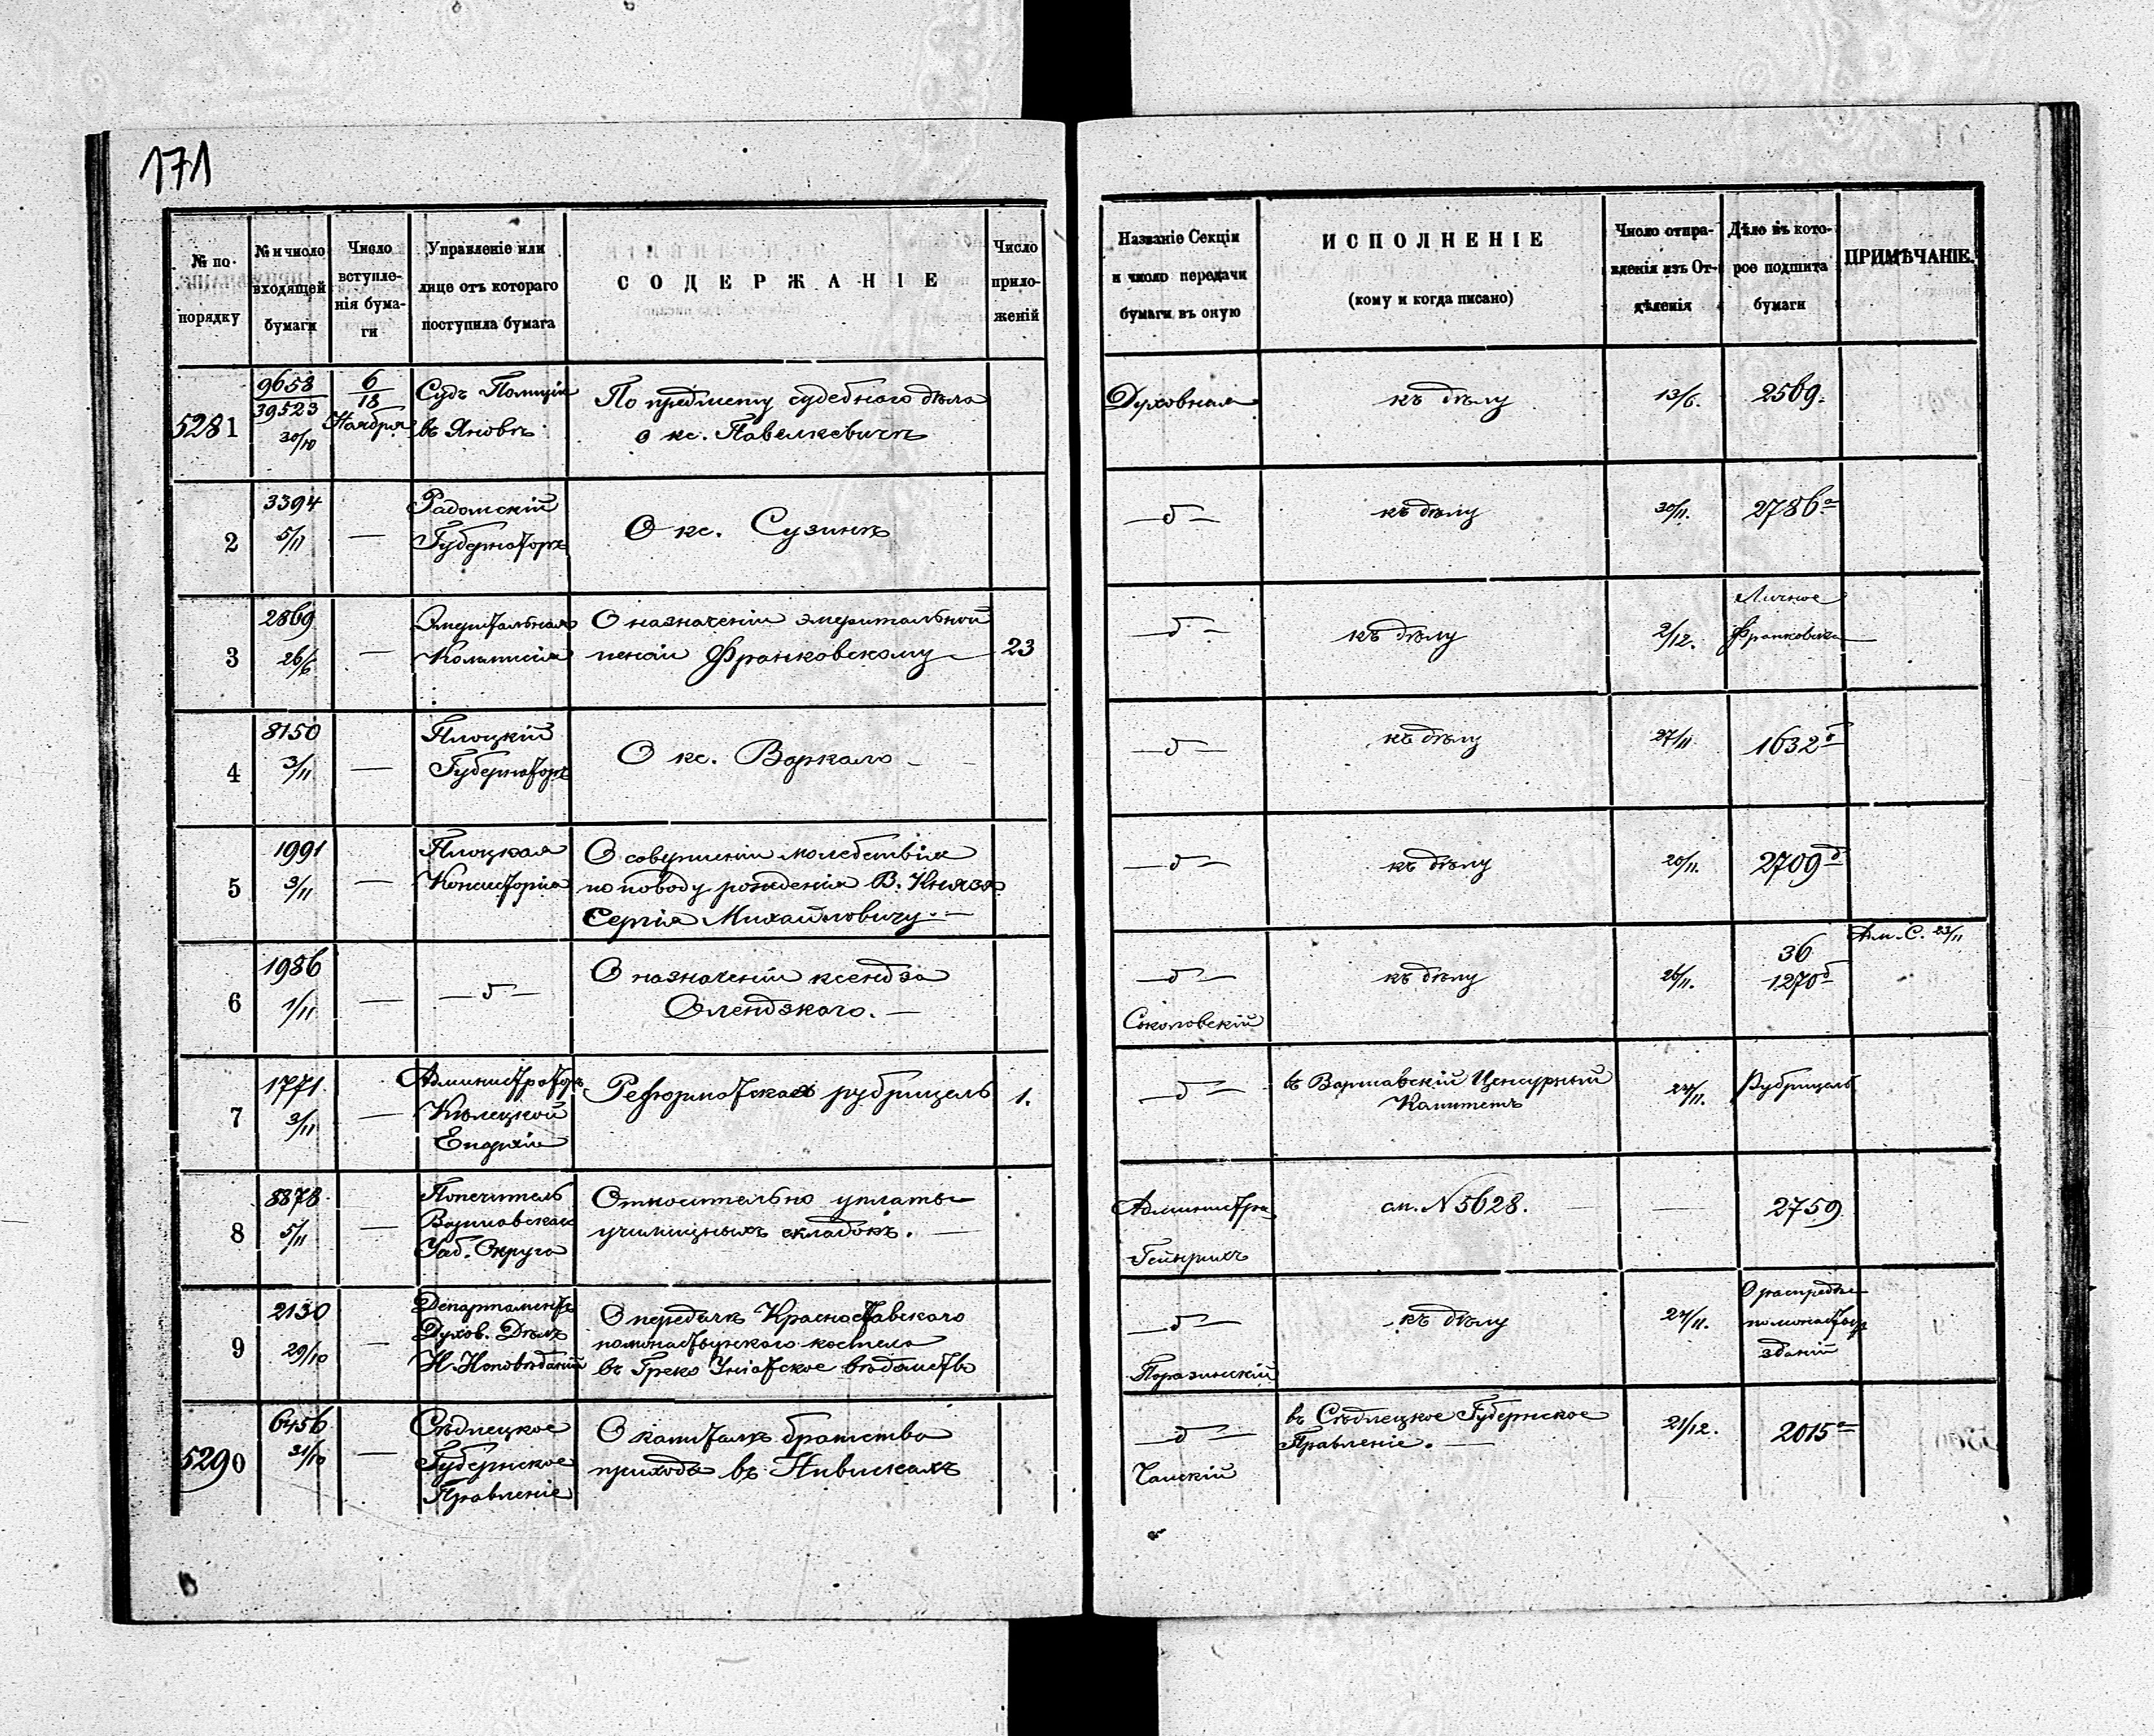 171
№ по порядку
№ и число входящей бумаги
Число вступленія бумаги
Управленіе или лице отъ котораго поступила бумага
СОДЕРЖАНІЕ
Число приложеній
Названіе Секціи и число передачи бумаги въ оную
ИСПОЛНЕНІЕ
(кому и когда писано)
Число отправленія изъ Отдѣленія
Дѣло въ которое подшита бумаги
ПРИМѢЧАНІЕ.
5281
9658
39523
30/10
6
18
Ноября
Судъ Полиціи
въ Яновѣ
По предмету судебного дѣла
о кс. Павелкевичѣ
Духовная
къ дѣлу
13/6.
2569.
2
3394
5/11
—
Радомскій
Губернаторъ
О кс. Сузинѣ
— д —
къ дѣлу
30/11.
2786 а
3
2869
26/6
—
Эмеритальная
Коммисія
О назначеніи эмеритальной
пенсіи Франковскому —
23
— д —
къ дѣлу
2/12.
Личное
Франковска
4
8150
3/11
—
Плоцкій
Губернаторъ
О кс. Варкало —
— д —
къ дѣлу
27/11.
1632 б
5
1991
3/11
—
Плоцкая
Консисторія
О совершеніи молебствія
по поводу рожденія В. Князя
Сергія Михайловичу. —
— д —
къ дѣлу
20/11.
2709 б
6
1986
1/11
—
— д —
О назначеніи ксендза
Олендзкого. —
— д —
Соколовскій
къ дѣлу
26/11.
36
1270 б
23/11
7
1771.
3/11
—
Администраторъ
Кѣлецкой
Епархіи
Реформатская рубрицель
1.
— д —
въ Варшавскій Ценсурный
Комитетъ
24/11.
Рубрицель
8
8878
5/11
—
Попечитель
Варшавскаго
Уаб. Округа
Относительно уплаты
училищныхъ складокъ. —
Администра
Гейнрихъ
см. N 5628.
—
2759
9
2130
29/10
—
Департаментъ
Духов. Дѣлъ
И. Исповѣданій
О передачѣ Красноставского
помонастырского костела
въ Греко Уніатское вѣдомство
— д —
Поразинскій
къ дѣлу
24/11.
О распредѣле
помонастыр
зданій
5290
6456
31/10
—
Сѣдлецкое
Губернское
Правленіе
О капиталѣ братства
прихода въ Нивискахъ
— д —
Чамскій
въ Сѣдлецкое Губернское
Правленіе. —
21/12.
2015 а